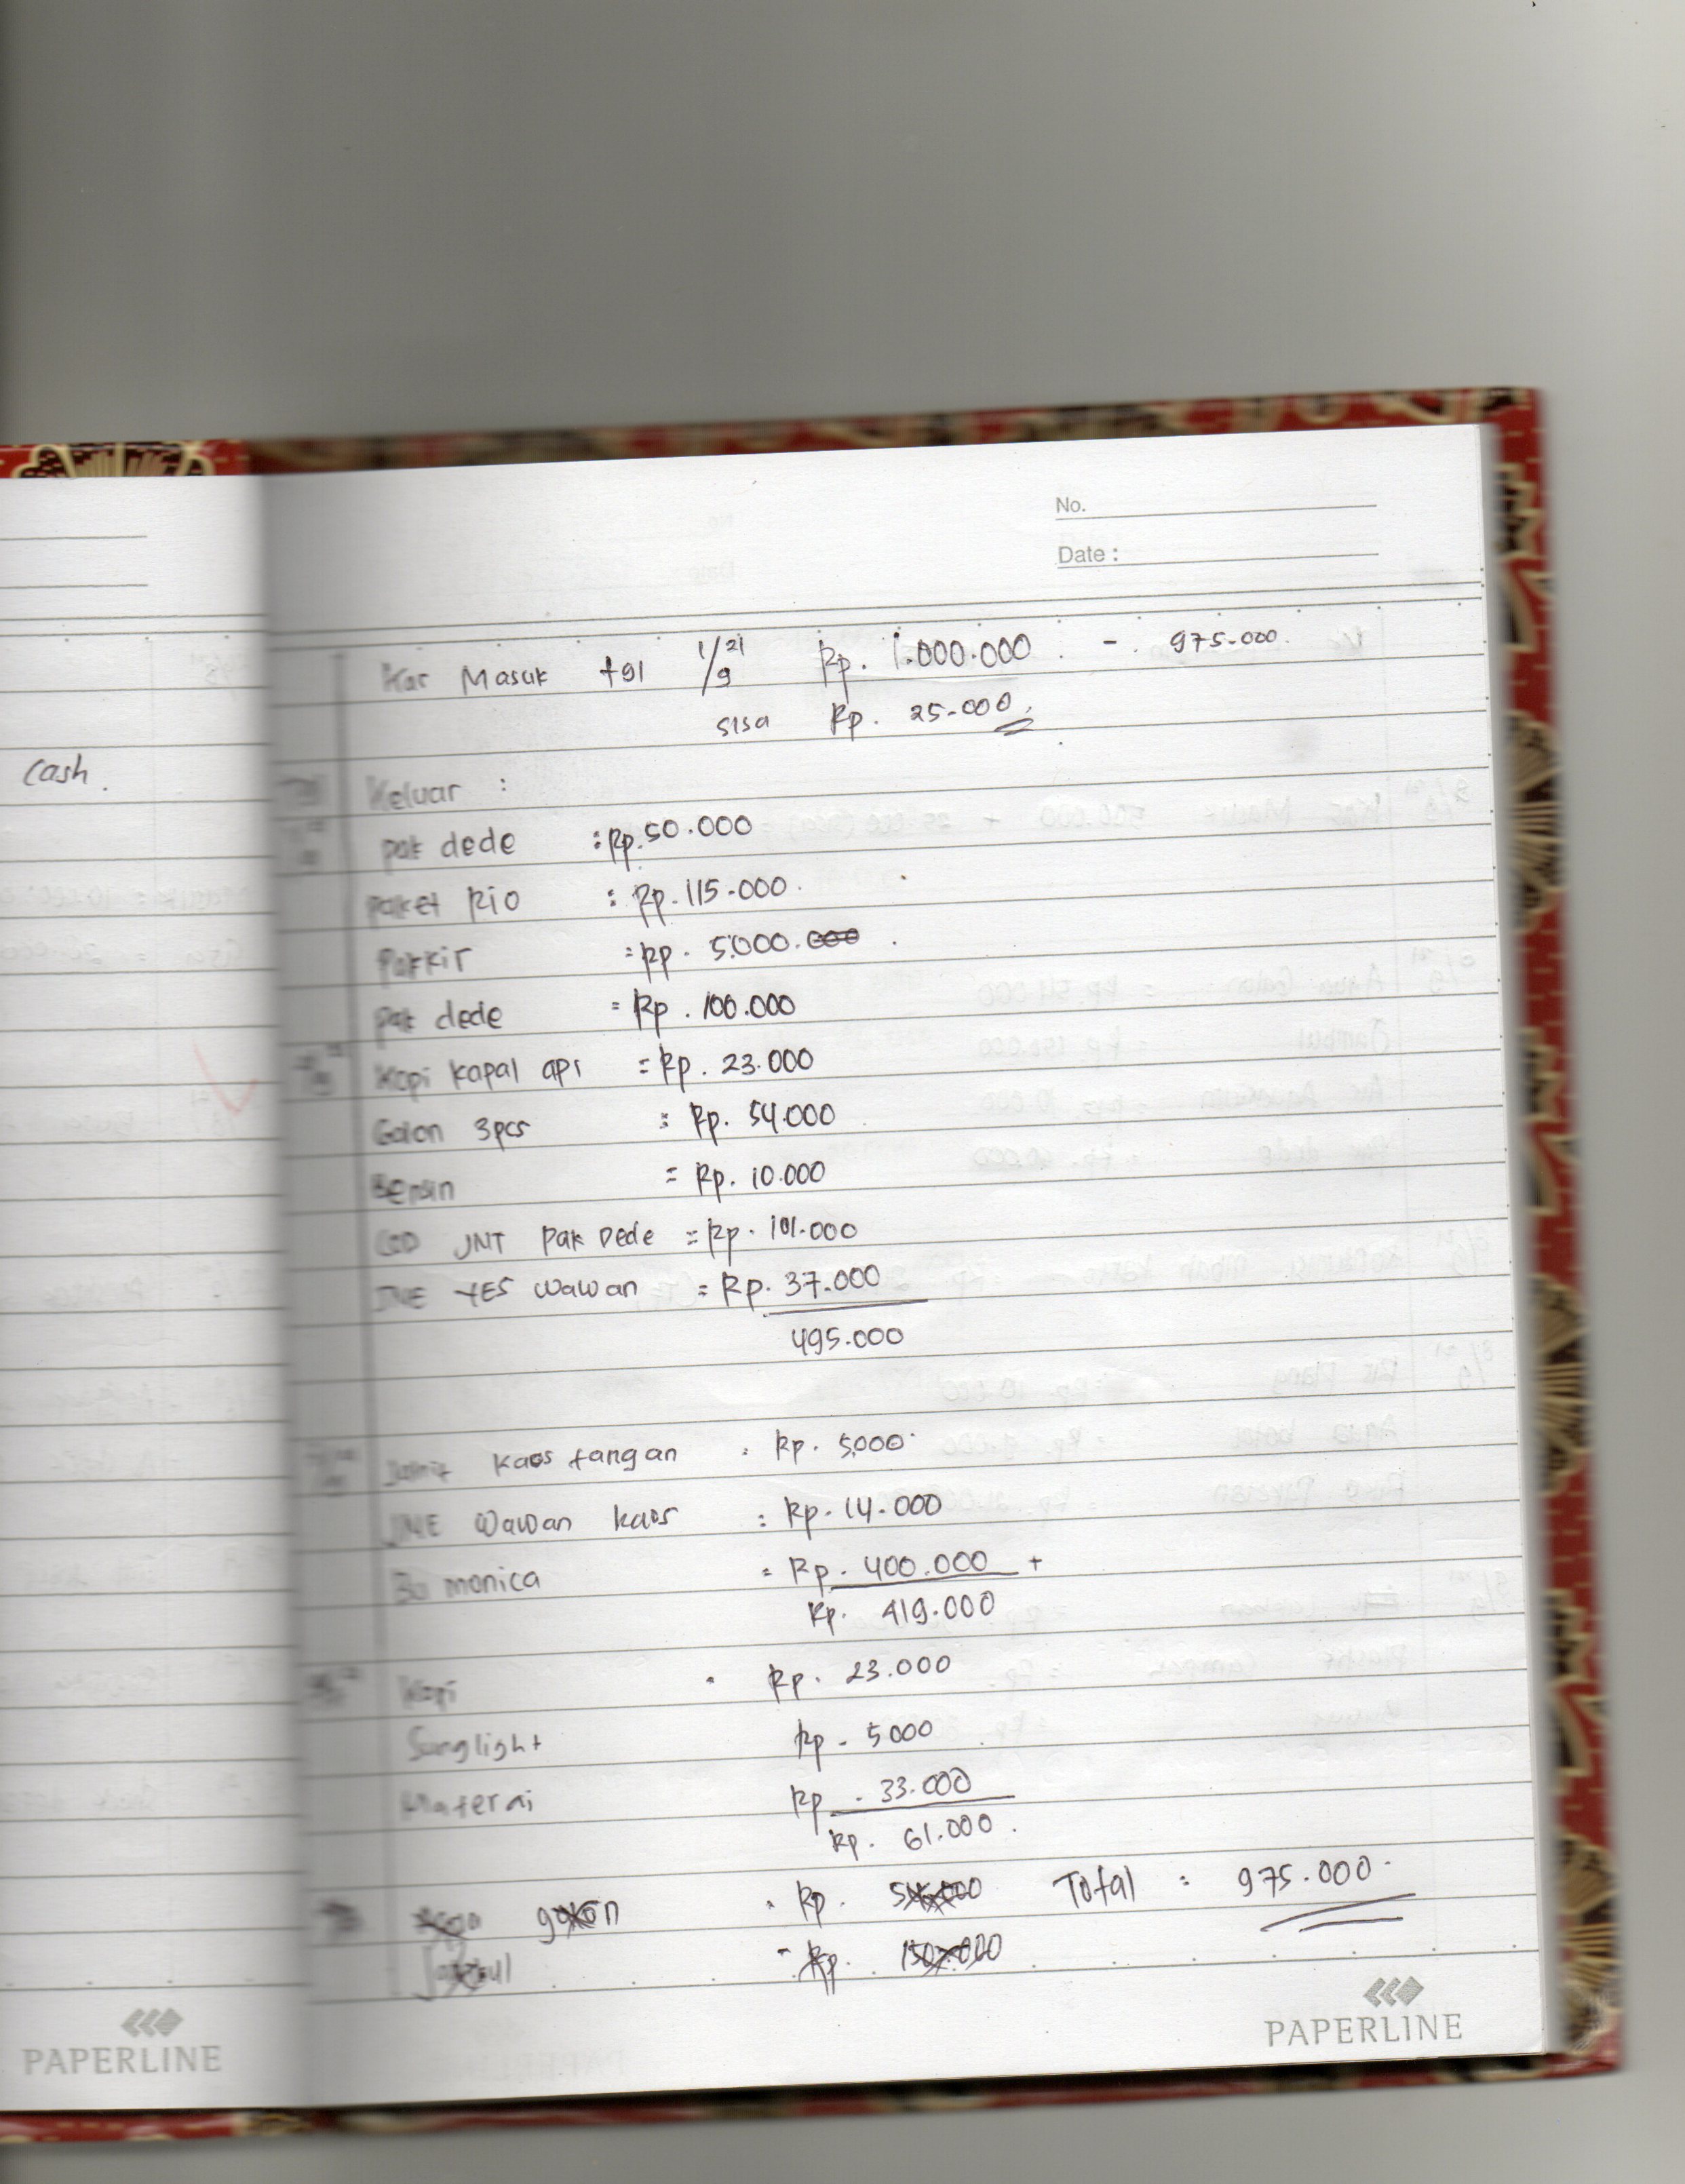 No.
Date :
Kas Masuk tgl 1/9 21 Rp. 1.000.000 - 975.000
sisa Rp. 25.000
Cash.
Keluar :
pak dede : Rp. 50.000
paket Rio : Rp. 115.000
parkir = Rp. 5.000.000
pak dede = Rp. 100.000
Kopi kapal api = Rp. 23.000
Galon 3pcs : Rp. 54.000
Bensin = Rp. 10.000
COD JNT Pak Dede = Rp. 101.000
JNE YES Wawan = Rp. 37.000
495.000
kaos tangan = Rp. 5.000
JNE Wawan kaos : Rp. 14.000
Bu monica = Rp. 400.000 +
Rp. 419.000
Kopi Rp. 23.000
Sunglight Rp. 5000
Materai Rp. 33.000
Rp. 61.000
galon Rp. Total : 975.000
Rp. 150.000
PAPERLINE
PAPERLINE